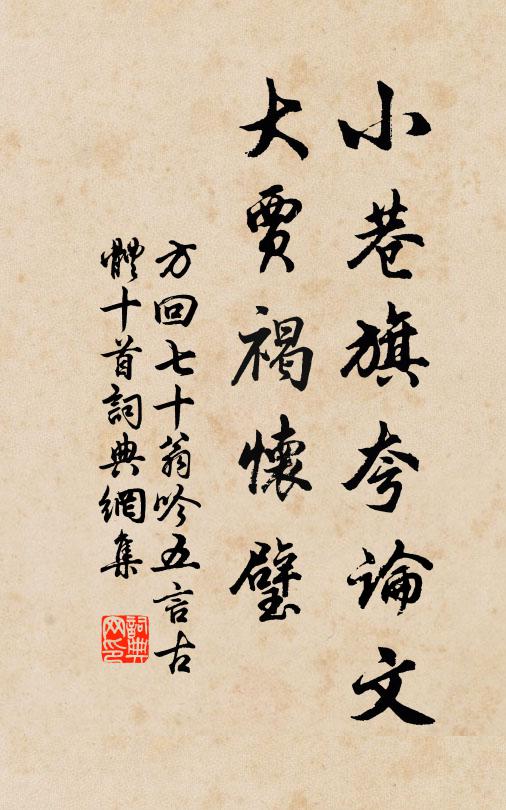 小巷旗夸論文
大賈褐懷璧
方回七十翁吟五言古
體十首詞典網集
詞典
网印